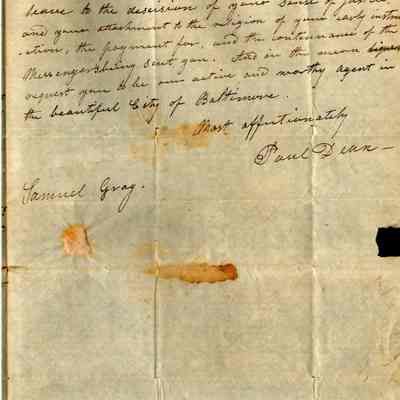 leave to the descision of your sense of justice
and your attachment to the religion of your early instru
ction, the payment for, and the continuance of the
Messenger being sent you. And in the mean
request you to be our active and worthy agent in
the beautiful City of Baltimore.
Most affectionately
Paul Dean
Samuel Gray.